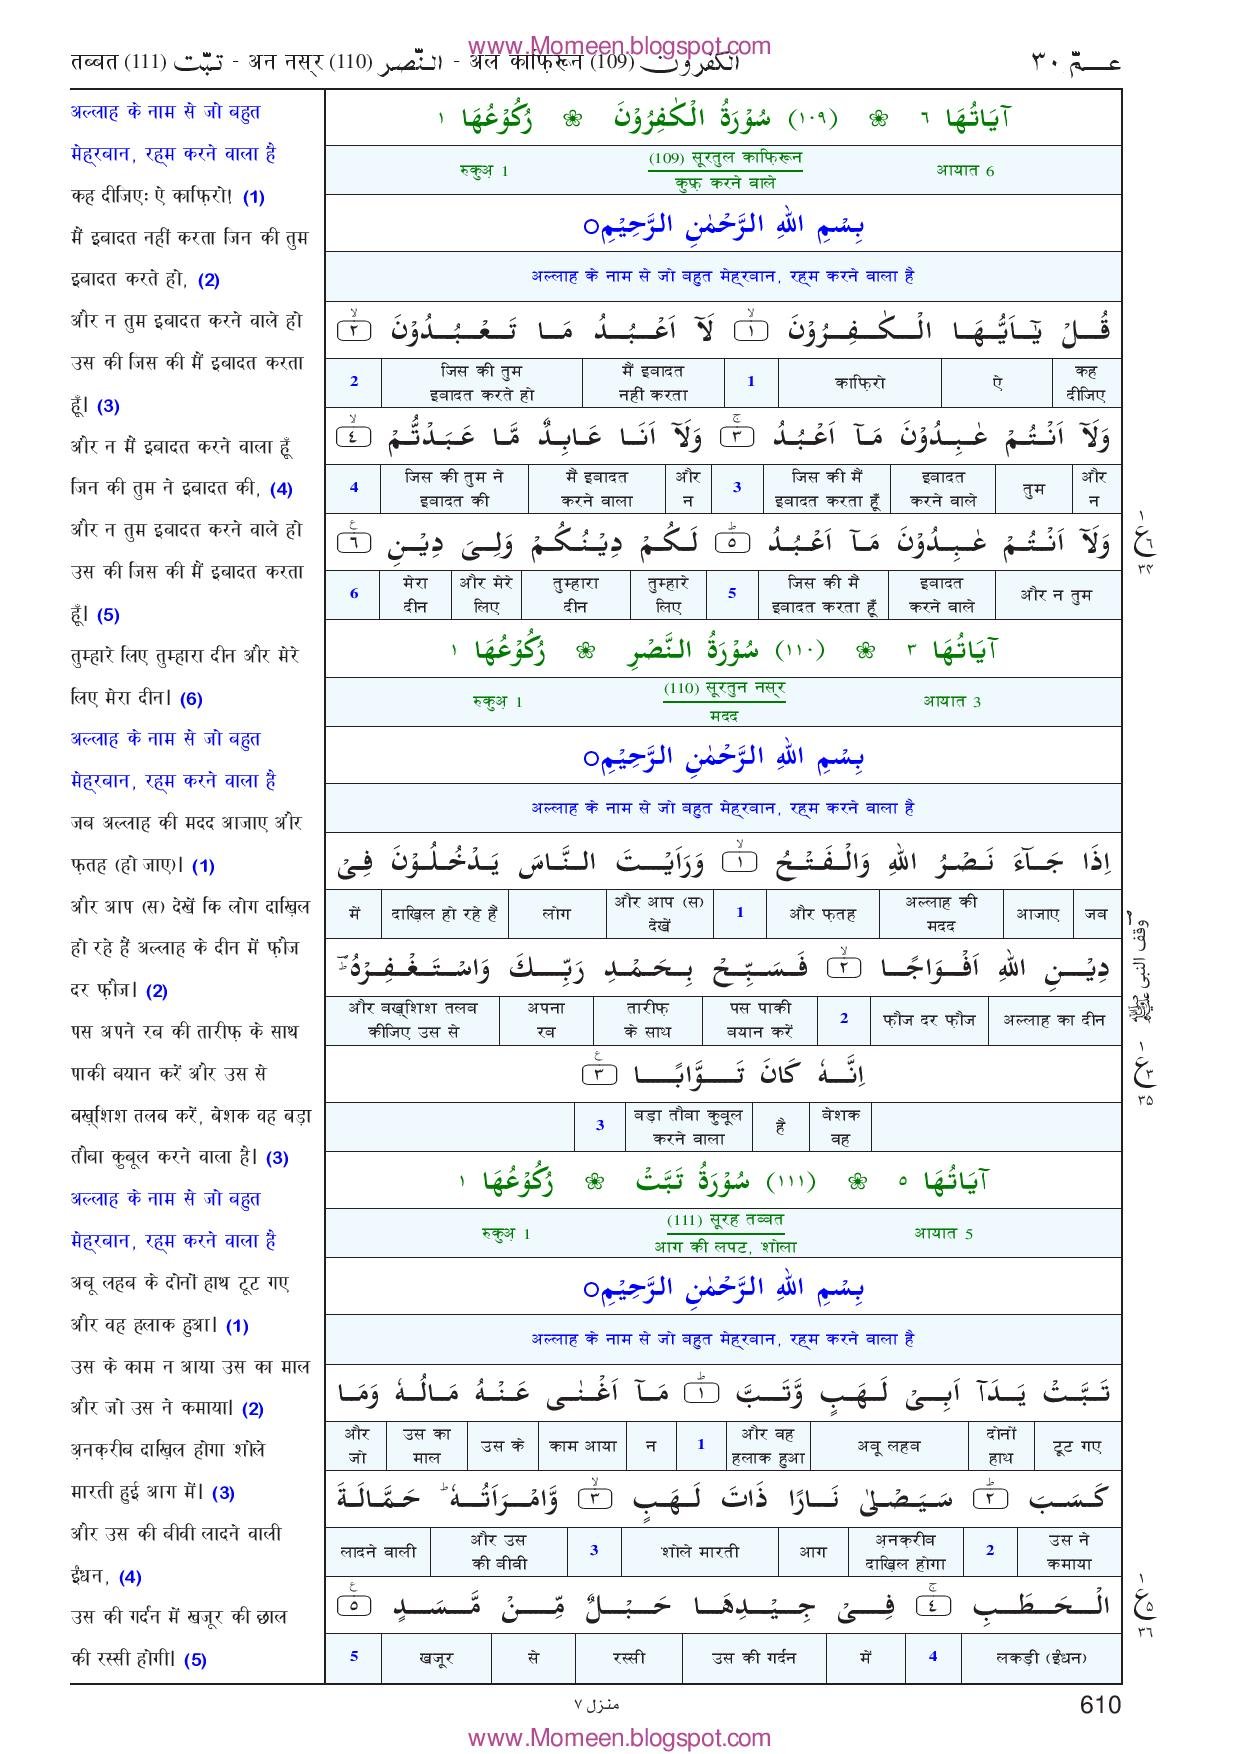 www.Momeen.blogspot.com
तब्बत (111) تبّت - अन नस्र (110) النّصر - अल काफ़िरून (109) الكفرون
عـمّ ٣٠
अल्लाह के नाम से जो बहुत
मेह्रबान, रह्म करने वाला है
कह दीजिएः ऐ काफ़िरो! (1)
मैं इबादत नहीं करता जिन की तुम
इबादत करते हो, (2)
और न तुम इबादत करने वाले हो
उस की जिस की मैं इबादत करता
हूँ। (3)
और न मैं इबादत करने वाला हूँ
जिन की तुम ने इबादत की, (4)
और न तुम इबादत करने वाले हो
उस की जिस की मैं इबादत करता
हूँ। (5)
तुम्हारे लिए तुम्हारा दीन और मेरे
लिए मेरा दीन। (6)
अल्लाह के नाम से जो बहुत
मेह्रबान, रह्म करने वाला है
जब अल्लाह की मदद आजाए और
फ़तह (हो जाए)। (1)
और आप (स) देखें कि लोग दाख़िल
हो रहे हैं अल्लाह के दीन में फ़ौज
दर फ़ौज। (2)
पस अपने रब की तारीफ़ के साथ
पाकी बयान करें और उस से
बख़्शिश तलब करें, बेशक वह बड़ा
तौबा कुबूल करने वाला है। (3)
अल्लाह के नाम से जो बहुत
मेह्रबान, रह्म करने वाला है
अबू लहब के दोनों हाथ टूट गए
और वह हलाक हुआ। (1)
उस के काम न आया उस का माल
और जो उस ने कमाया। (2)
अ़नक़रीब दाख़िल होगा शोले
मारती हुई आग में। (3)
और उस की बीवी लादने वाली
ईंधन, (4)
उस की गर्दन में खजूर की छाल
की रस्सी होगी। (5)
آيَاتُهَا ٦ ❀ (١٠٩) سُوْرَةُ الْكٰفِرُوْنَ ❀ رُكُوْعُهَا ١
रुकुअ़ 1 (109) सूरतुल काफ़िरून आयात 6
कुफ़्र करने वाले
بِسْمِ اللهِ الرَّحْمٰنِ الرَّحِيْمِ○
अल्लाह के नाम से जो बहुत मेह्रबान, रह्म करने वाला है
قُلْ يٰٓاَيُّهَا الْكٰفِرُوْنَ ۙ١ لَآ اَعْبُدُ مَا تَعْبُدُوْنَ ۙ٢
2 जिस की तुम मैं इबादत 1 काफ़िरो ऐ कह
इबादत करते हो नहीं करता दीजिए
وَلَآ اَنْتُمْ عٰبِدُوْنَ مَآ اَعْبُدُ ۚ٣ وَلَآ اَنَا عَابِدٌ مَّا عَبَدْتُّمْ ۙ٤
4 जिस की तुम ने मैं इबादत और 3 जिस की मैं इबादत तुम और
इबादत की करने वाला न इबादत करता हूँ करने वाले न
وَلَآ اَنْتُمْ عٰبِدُوْنَ مَآ اَعْبُدُ ؕ٥ لَكُمْ دِيْنُكُمْ وَلِيَ دِيْنِ ٦ ع
6 मेरा और मेरे तुम्हारा तुम्हारे 5 जिस की मैं इबादत और न तुम
दीन लिए दीन लिए इबादत करता हूँ करने वाले
١ ع ٦ ٣٤
آيَاتُهَا ٣ ❀ (١١٠) سُوْرَةُ النَّصْرِ ❀ رُكُوْعُهَا ١
रुकुअ़ 1 (110) सूरतुन नस्र आयात 3
मदद
بِسْمِ اللهِ الرَّحْمٰنِ الرَّحِيْمِ○
अल्लाह के नाम से जो बहुत मेह्रबान, रह्म करने वाला है
اِذَا جَآءَ نَصْرُ اللهِ وَالْفَتْحُ ۙ١ وَرَاَيْتَ النَّاسَ يَدْخُلُوْنَ فِيْ
में दाख़िल हो रहे हैं लोग और आप (स) 1 और फ़तह अल्लाह की आजाए जब
देखें मदद
دِيْنِ اللهِ اَفْوَاجًا ۙ٢ فَسَبِّحْ بِحَمْدِ رَبِّكَ وَاسْتَغْفِرْهُ ؕ
और बख़्शिश तलब अपना तारीफ़ पस पाकी 2 फ़ौज दर फ़ौज अल्लाह का दीन
कीजिए उस से रब के साथ बयान करें
وقف النبى ﷺ
اِنَّهٗ كَانَ تَوَّابًا ٣ ع
3 बड़ा तौबा कुबूल है बेशक
करने वाला वह
١ ع ٣ ٣٥
آيَاتُهَا ٥ ❀ (١١١) سُوْرَةُ تَبَّتْ ❀ رُكُوْعُهَا ١
रुकुअ़ 1 (111) सूरह तब्बत आयात 5
आग की लपट, शोला
بِسْمِ اللهِ الرَّحْمٰنِ الرَّحِيْمِ○
अल्लाह के नाम से जो बहुत मेह्रबान, रह्म करने वाला है
تَبَّتْ يَدَآ اَبِيْ لَهَبٍ وَّتَبَّ ؕ١ مَآ اَغْنٰى عَنْهُ مَالُهٗ وَمَا
और उस का उस के काम आया न 1 और वह अबू लहब दोनों टूट गए
जो माल हलाक हुआ हाथ
كَسَبَ ؕ٢ سَيَصْلٰى نَارًا ذَاتَ لَهَبٍ ۙ٣ وَّامْرَاَتُهٗ ؕ حَمَّالَةَ
लादने वाली और उस 3 शोले मारती आग अ़नक़रीब 2 उस ने
की बीवी दाख़िल होगा कमाया
الْحَطَبِ ۚ٤ فِيْ جِيْدِهَا حَبْلٌ مِّنْ مَّسَدٍ ٥ ع
5 खजूर से रस्सी उस की गर्दन में 4 लकड़ी (ईंधन)
١ ع ٥ ٣٦
منزل ٧
610
www.Momeen.blogspot.com